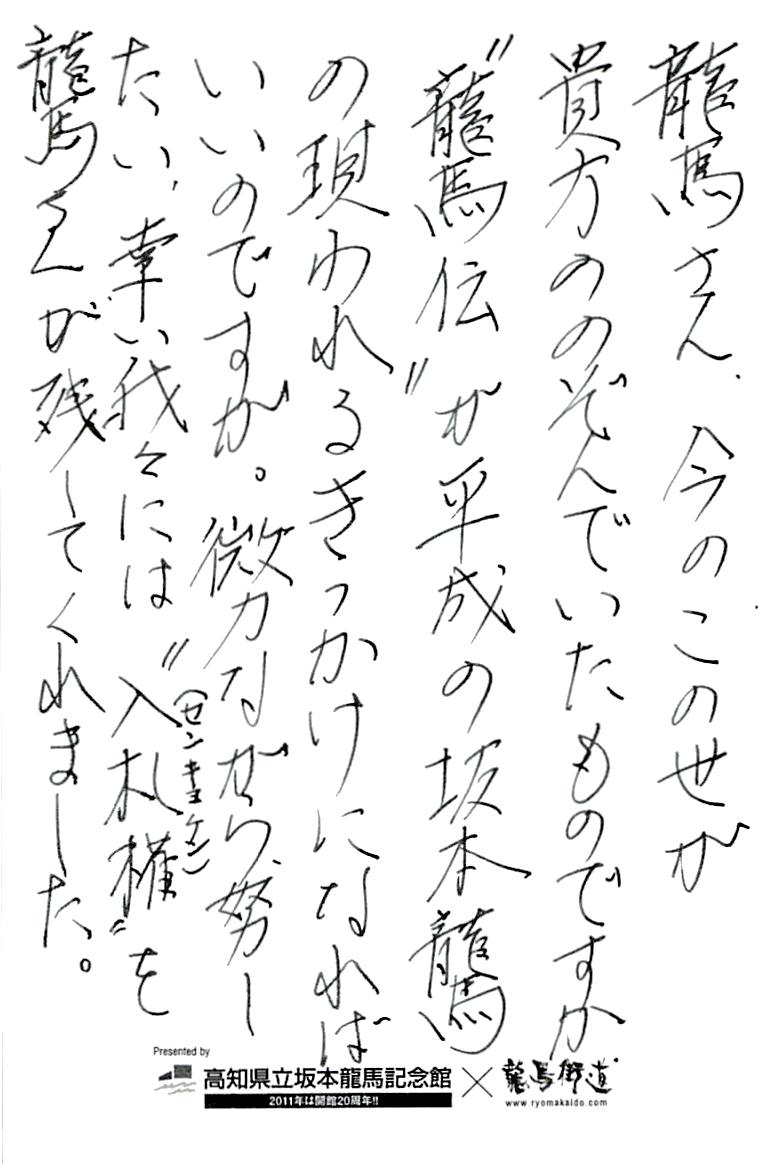 龍馬さん、今のこの世が
貴方ののぞんでいたものですか
〝龍馬伝〟が平成の坂本龍馬
の現われるきっかけになれば
いいのですが。微力ながら、努し
たい、幸い我々には〝入札権〟を
(センキョケン)
龍馬さんが残してくれました。
Presented by
高知県立坂本龍馬記念館×龍馬街道
2011年は開館20周年!!
www.ryomakaido.com